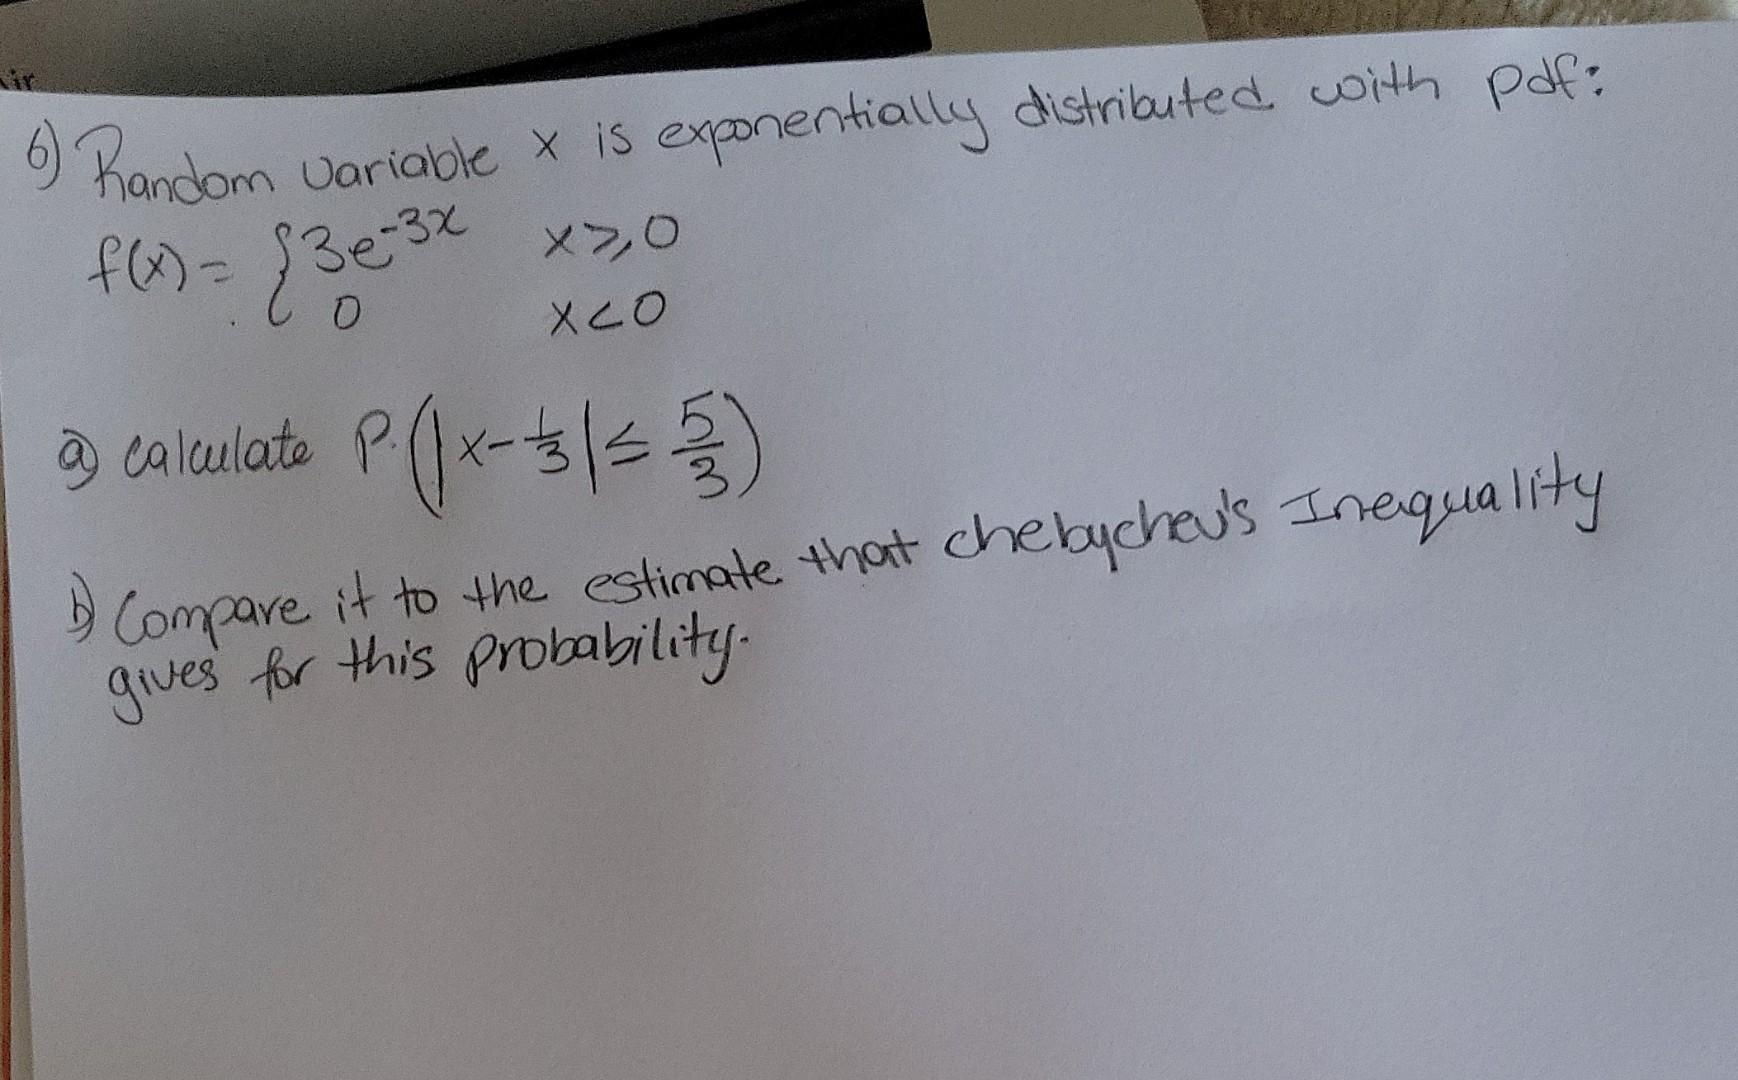 ir
6) Random variable x is exponentially distributed with pdf:
f(x) = { 3e^-3x x ≥ 0
0 x < 0
a) calculate P(|x - 1/3| ≤ 5/3)
b) Compare it to the estimate that chebychev's Inequality
gives for this probability.